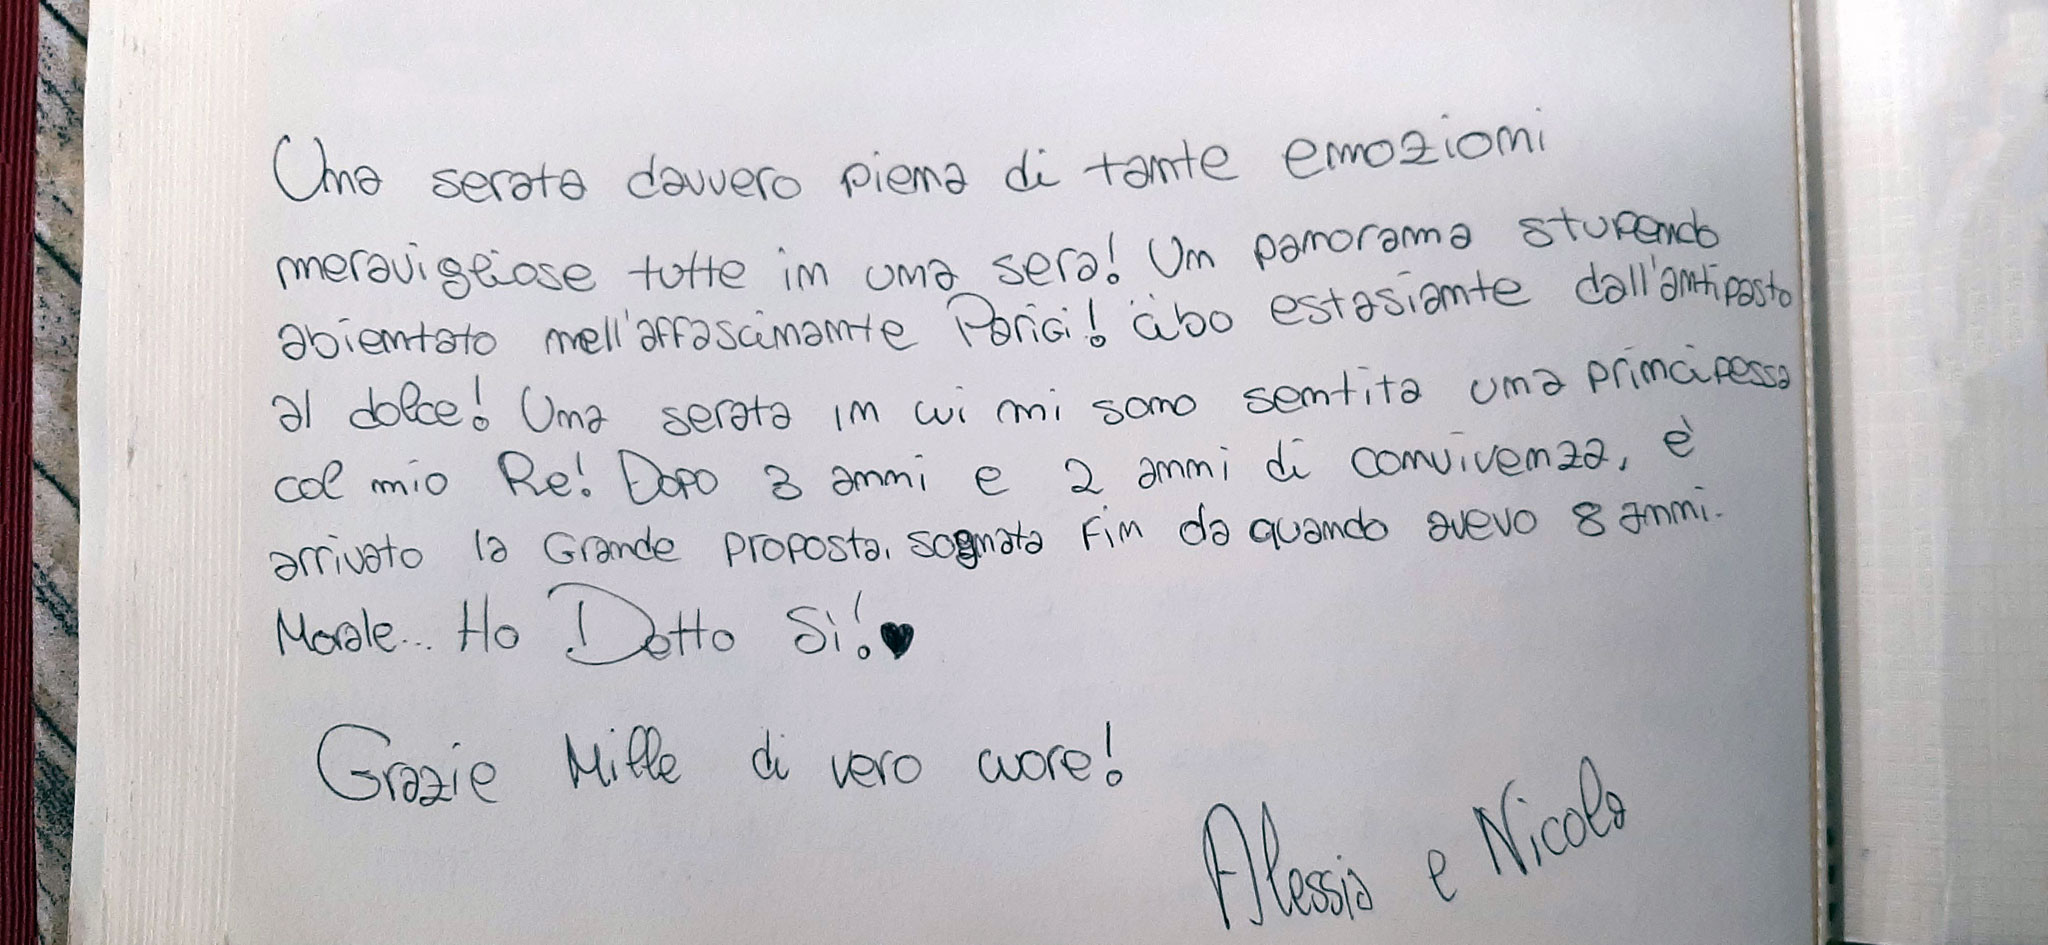 Una serata davvero piena di tante emozioni
meravigliose tutte in una sera! Un panorama stupendo
abientato nell'affascinante Parigi! Cibo estasiante dall'antipasto
al dolce! Una serata in cui mi sono sentita una principessa
col mio Re! Dopo 3 anni e 2 anni di convivenza, è
arrivato la Grande proposta, sognata fin da quando avevo 8 anni.
Morale... Ho Detto Sì!♥
Grazie Mille di vero cuore!
Alessia e Nicola